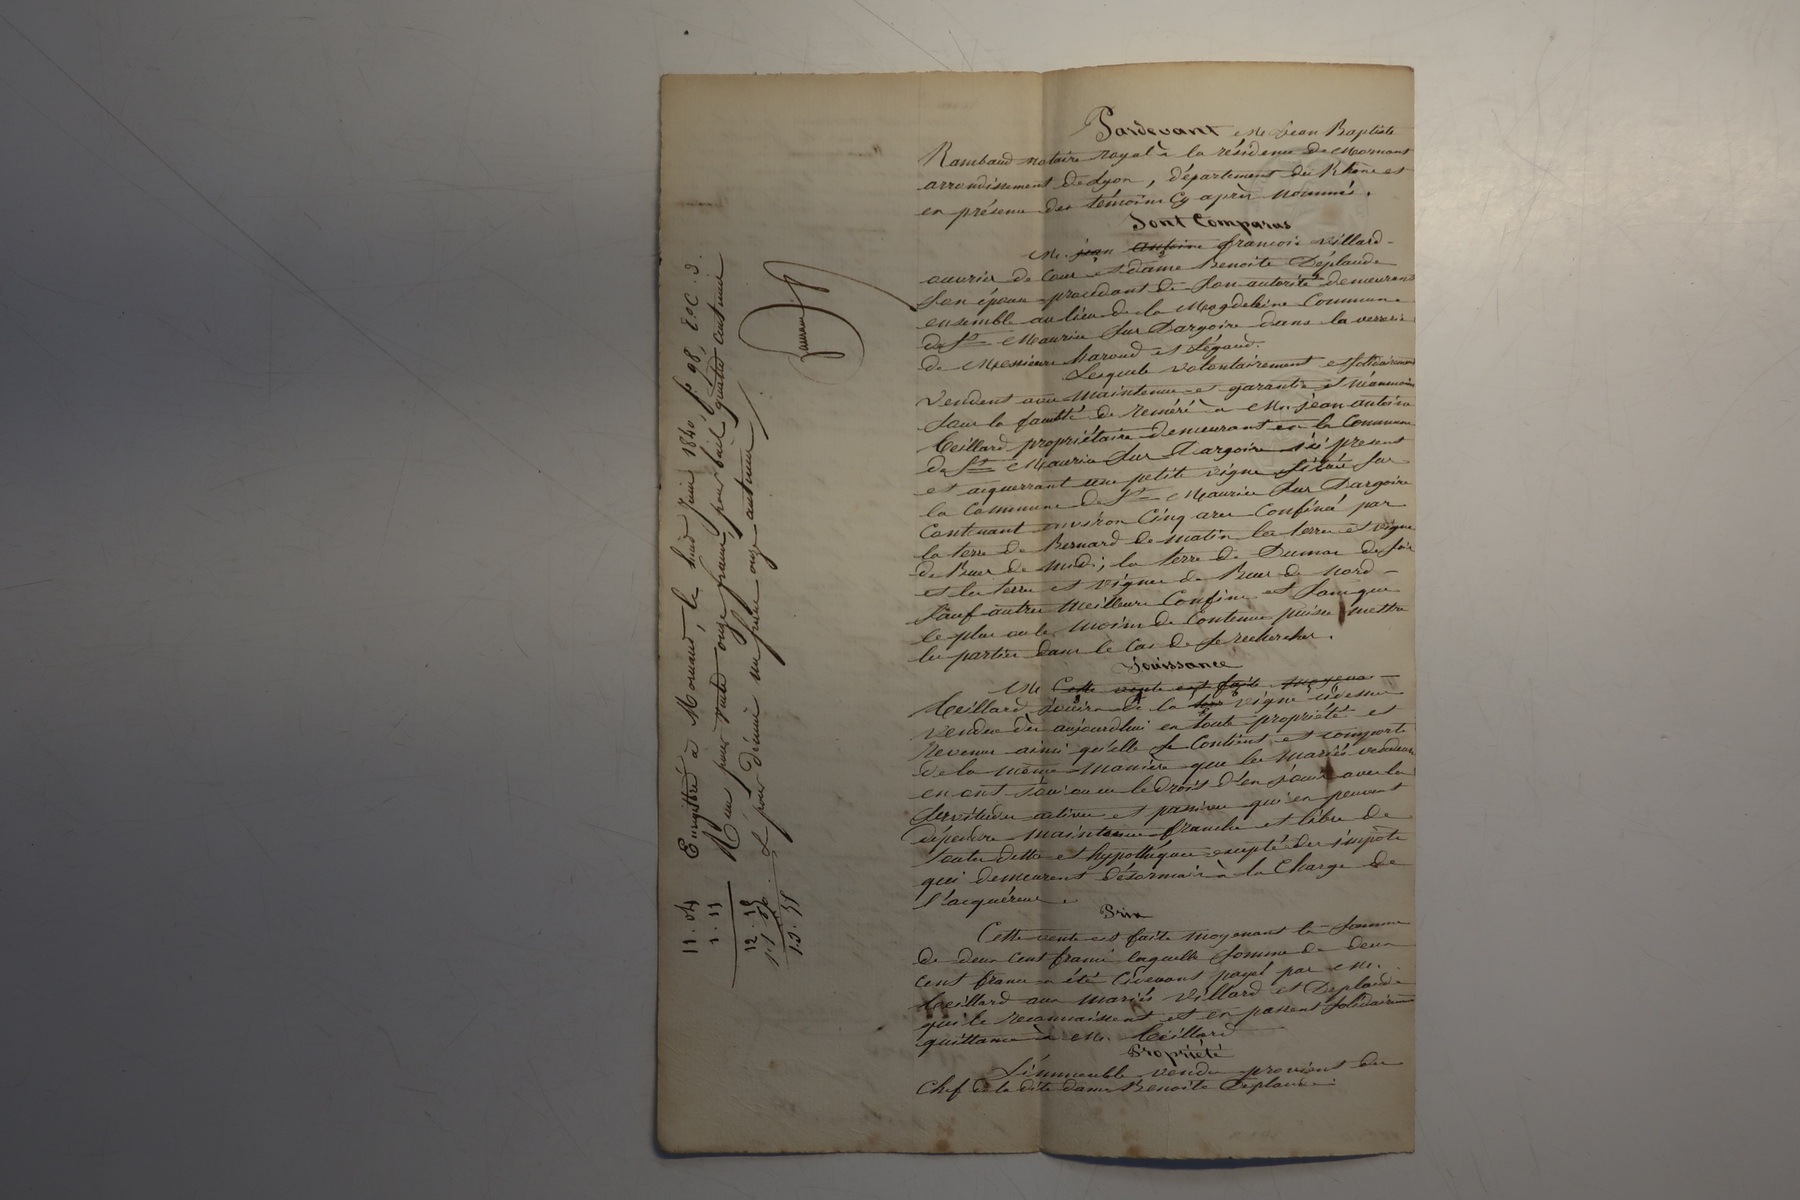 Pardevant Me Jean Baptiste
Rambaud notaire royal à la résidence de Mornant
arrondissement de Lyon, département du Rhône et
en présence des témoins cy après nommés.
Sont Comparus
Mr. jean antoine francois Villard
ouvrier de Cour et dame Benoite Déplaude
son épouse procédant de son autorité demeurent
ensemble au lieu de la Magdeleine Commune
de St Maurice sur Dargoire dans la verrerie
de Messieurs haroud et
Lesquels volontairement et solidairement
vendent avec maintenue et garantie et néanmoins
sous la faculté de reméré à Mr. jean antoine
Teillard propriétaire demeurant en la Commune
de St Maurice sur Dargoire ici présent
et acquerrant une petite vigne située sur
la Commune de St Maurice sur Dargoire
Contenant environ Cinq ares Confiné par
la terre de Bernard de matin les terre et vigne
de Buer de midi; la terre de Dumas de soir
et les terre et vignes de Buer de nord
sauf autres meilleurs Confins et sans que
le plus ou le moins de Contenue puisse mettre
les parties dans le Cas de se rechercher.
Jouissance
Mr Cette vente est faite moyena
Teillard jouira de la vigne cidessus
vendue dès aujourdhui en toute propriété et
revenus ainsi qu'elle se Contient et comporte
de la même manière que les mariés vendeurs
en ont joui ou eu le droit d'en jouir avec les
servitudes actives et passives qui en peuvent
dépendre maintenue franche et libre de
toutes dettes et hypothèques excepté des impôts
qui demeurent désormais à la Charge de
l'acquéreur.
Prix
Cette vente est faite moyenant la somme
de deux cent francs laquelle somme de deux
cent francs a été Cidevant payés par Mr.
Teillard aux mariés Villard et Deplaude
qui le reconnaissent et en passent solidairement
quittance à Mr. Teillard
Propriété
L'immeuble vendu provient du
Chef de la dite dame Benoite Deplaude.
Enregistré à Mornant, le huit juin 1840 fo 98, Ro C. 3.
Reçu pour vente onze francs, pour bail quatre centimes
& pour décime un franc onze centimes
11. 04
1. 11
12. 15